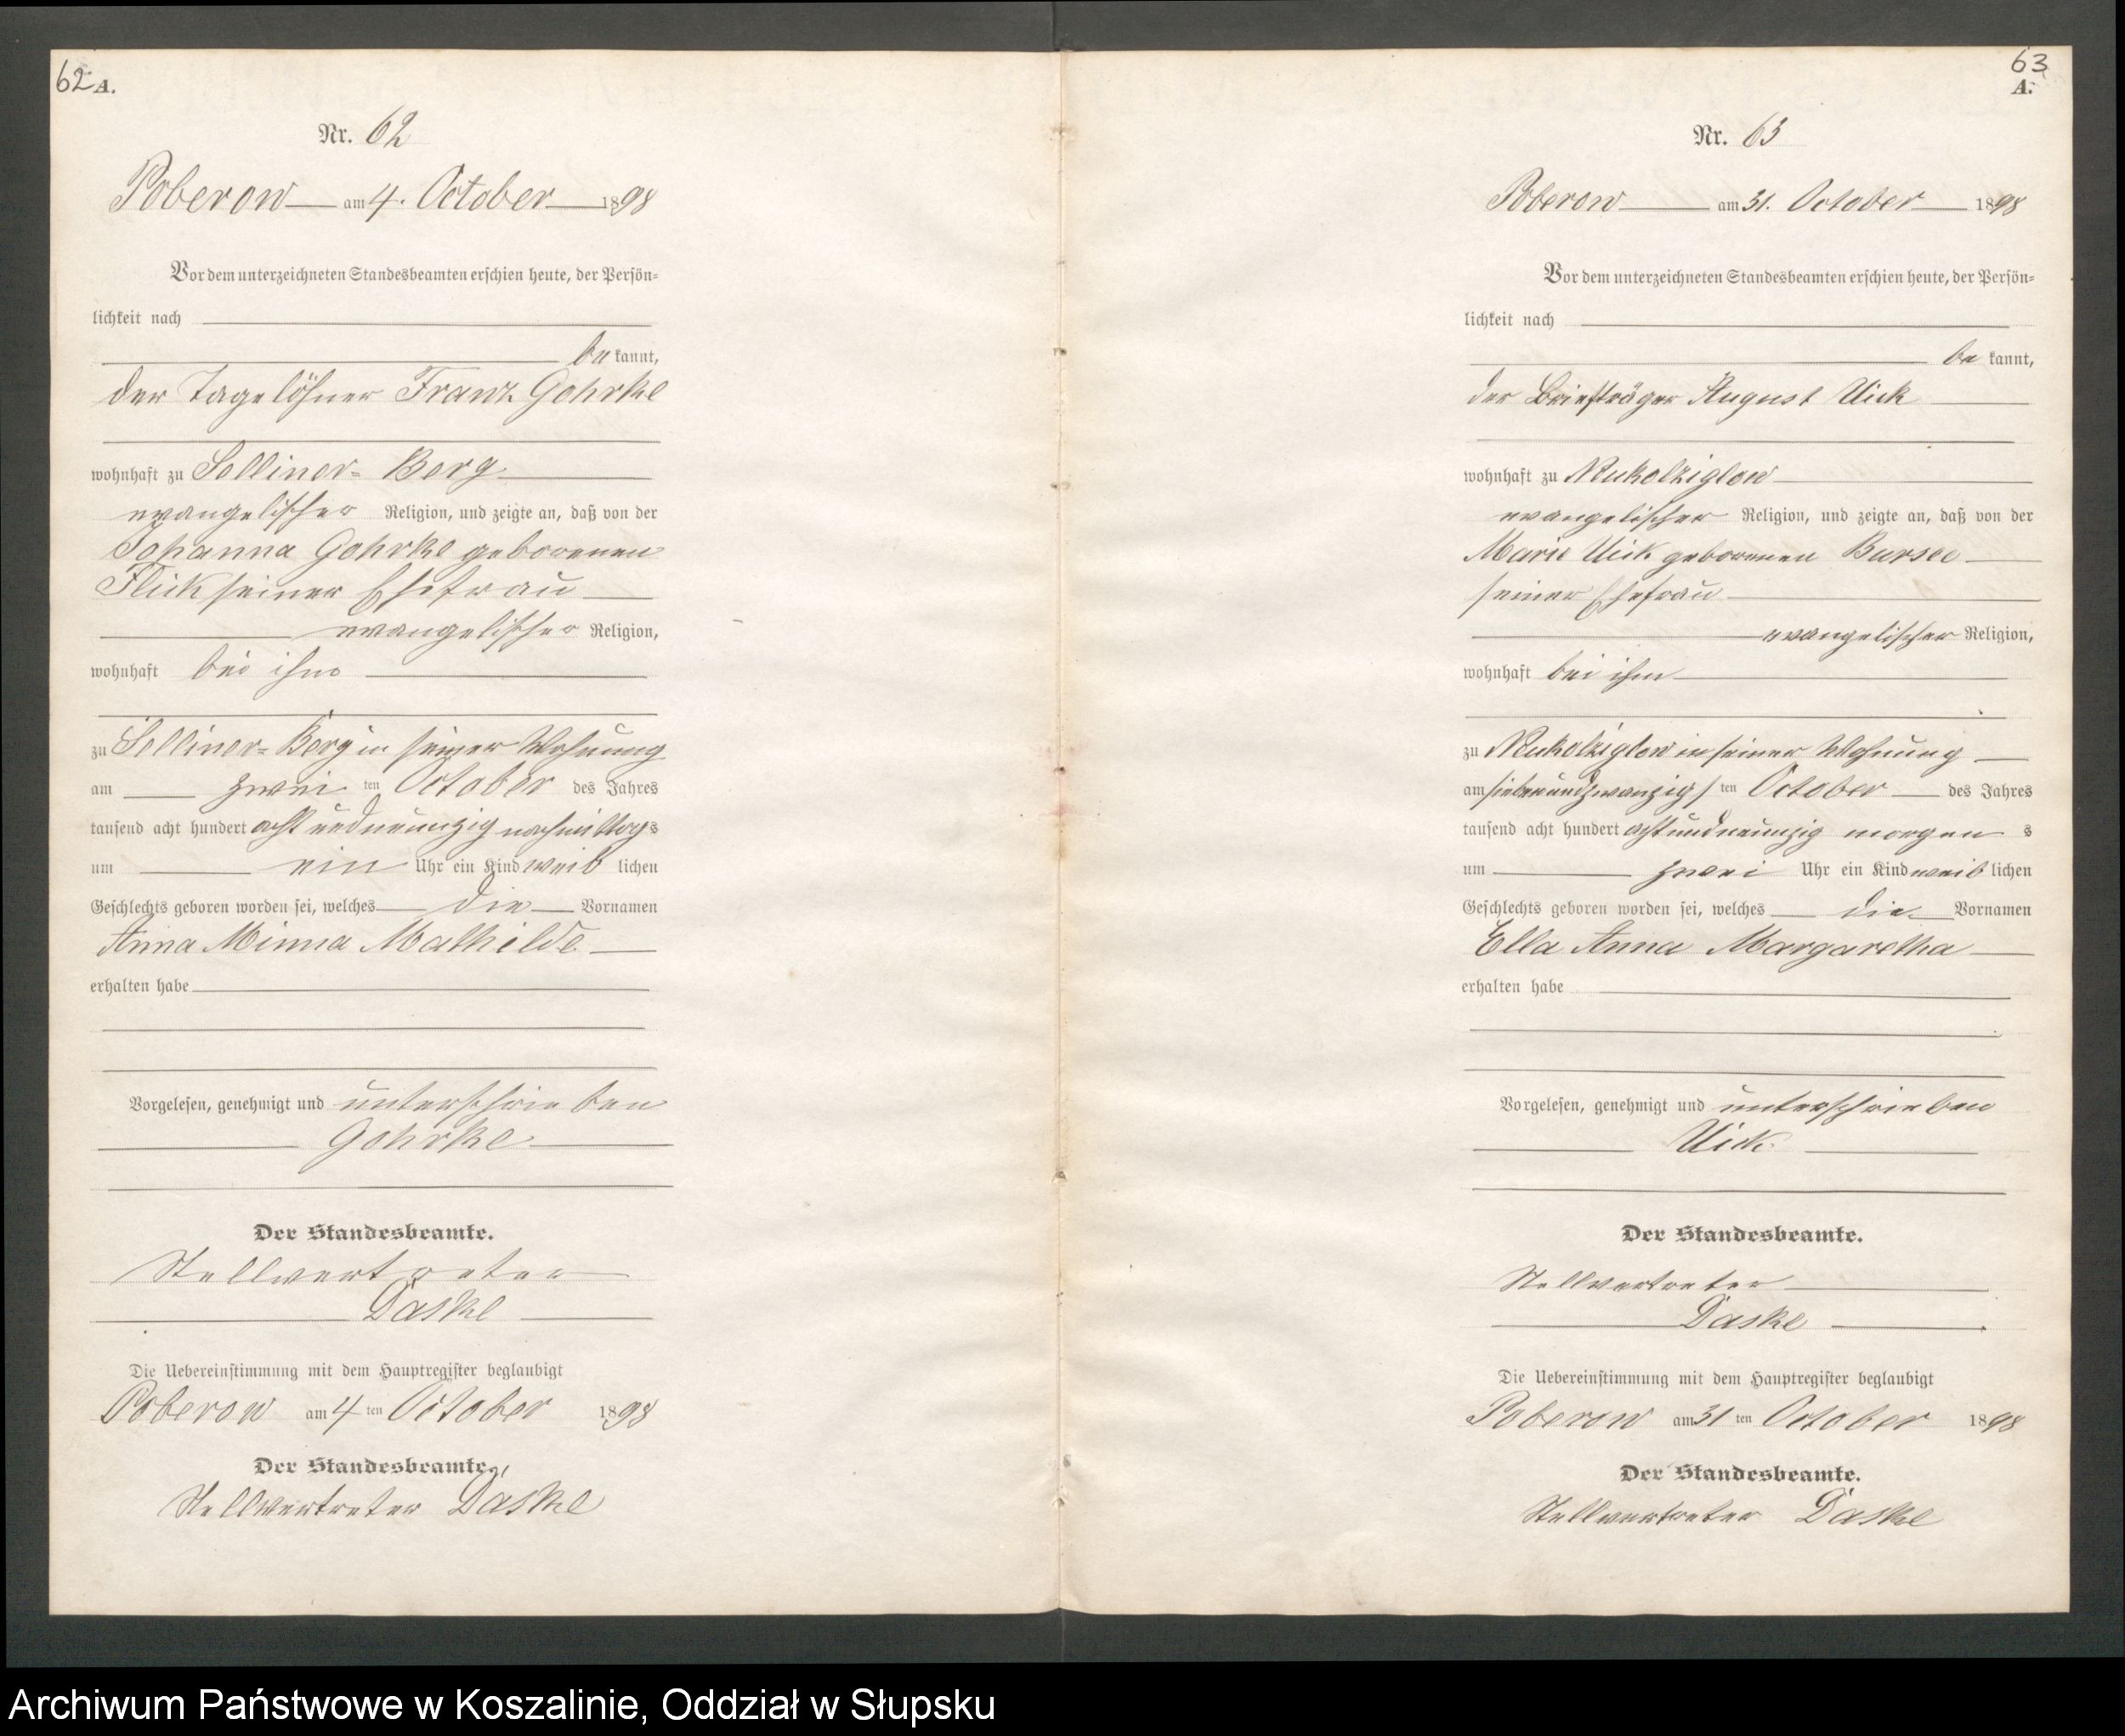 62 A.
Nr. 62
Poberow am 4. October 1898
Vor dem unterzeichneten Standesbeamten erschien heute, der Persön-
lichkeit nach
be kannt,
der Tagelöhner Franz Gohrke
wohnhaft zu Selliner-Berg
evangelischer Religion, und zeigte an, daß von der
Johanna Gohrke geborenen
Flick seiner Ehefrau
evangelischer Religion,
wohnhaft bei ihm
zu Selliner-Berg in seiner Wohnung
am zwei ten October des Jahres
tausend acht hundert acht und neunzig nachmittags
um ein Uhr ein Kind weib lichen
Geschlechts geboren worden sei, welches die Vornamen
Anna Minna Mathilde
erhalten habe
Vorgelesen, genehmigt und unterschrieben
Gohrke
Der Standesbeamte.
Stellvertreter
Daske
Die Uebereinstimmung mit dem Hauptregister beglaubigt
Poberow am 4 ten October 1898
Der Standesbeamte.
Stellvertreter Daske
63
A.
Nr. 63
Poberow am 31. October 1898
Vor dem unterzeichneten Standesbeamten erschien heute, der Persön-
lichkeit nach
be kannt,
der Briefträger August Uick
wohnhaft zu Neukolziglow
evangelischer Religion, und zeigte an, daß von der
Marie Uick geborenen Bursee
seiner Ehefrau
evangelischer Religion,
wohnhaft bei ihm
zu Neukolziglow in seiner Wohnung
am siebenundzwanzigs ten October des Jahres
tausend acht hundert achtundneunzig morgen s
um zwei Uhr ein Kind weib lichen
Geschlechts geboren worden sei, welches die Vornamen
Ella Anna Margaretha
erhalten habe
Vorgelesen, genehmigt und unterschrieben
Uick
Der Standesbeamte.
Stellvertreter
Daske
Die Uebereinstimmung mit dem Hauptregister beglaubigt
Poberow am 31 ten October 1898
Der Standesbeamte.
Stellvertreter Daske
Archiwum Państwowe w Koszalinie, Oddział w Słupsku